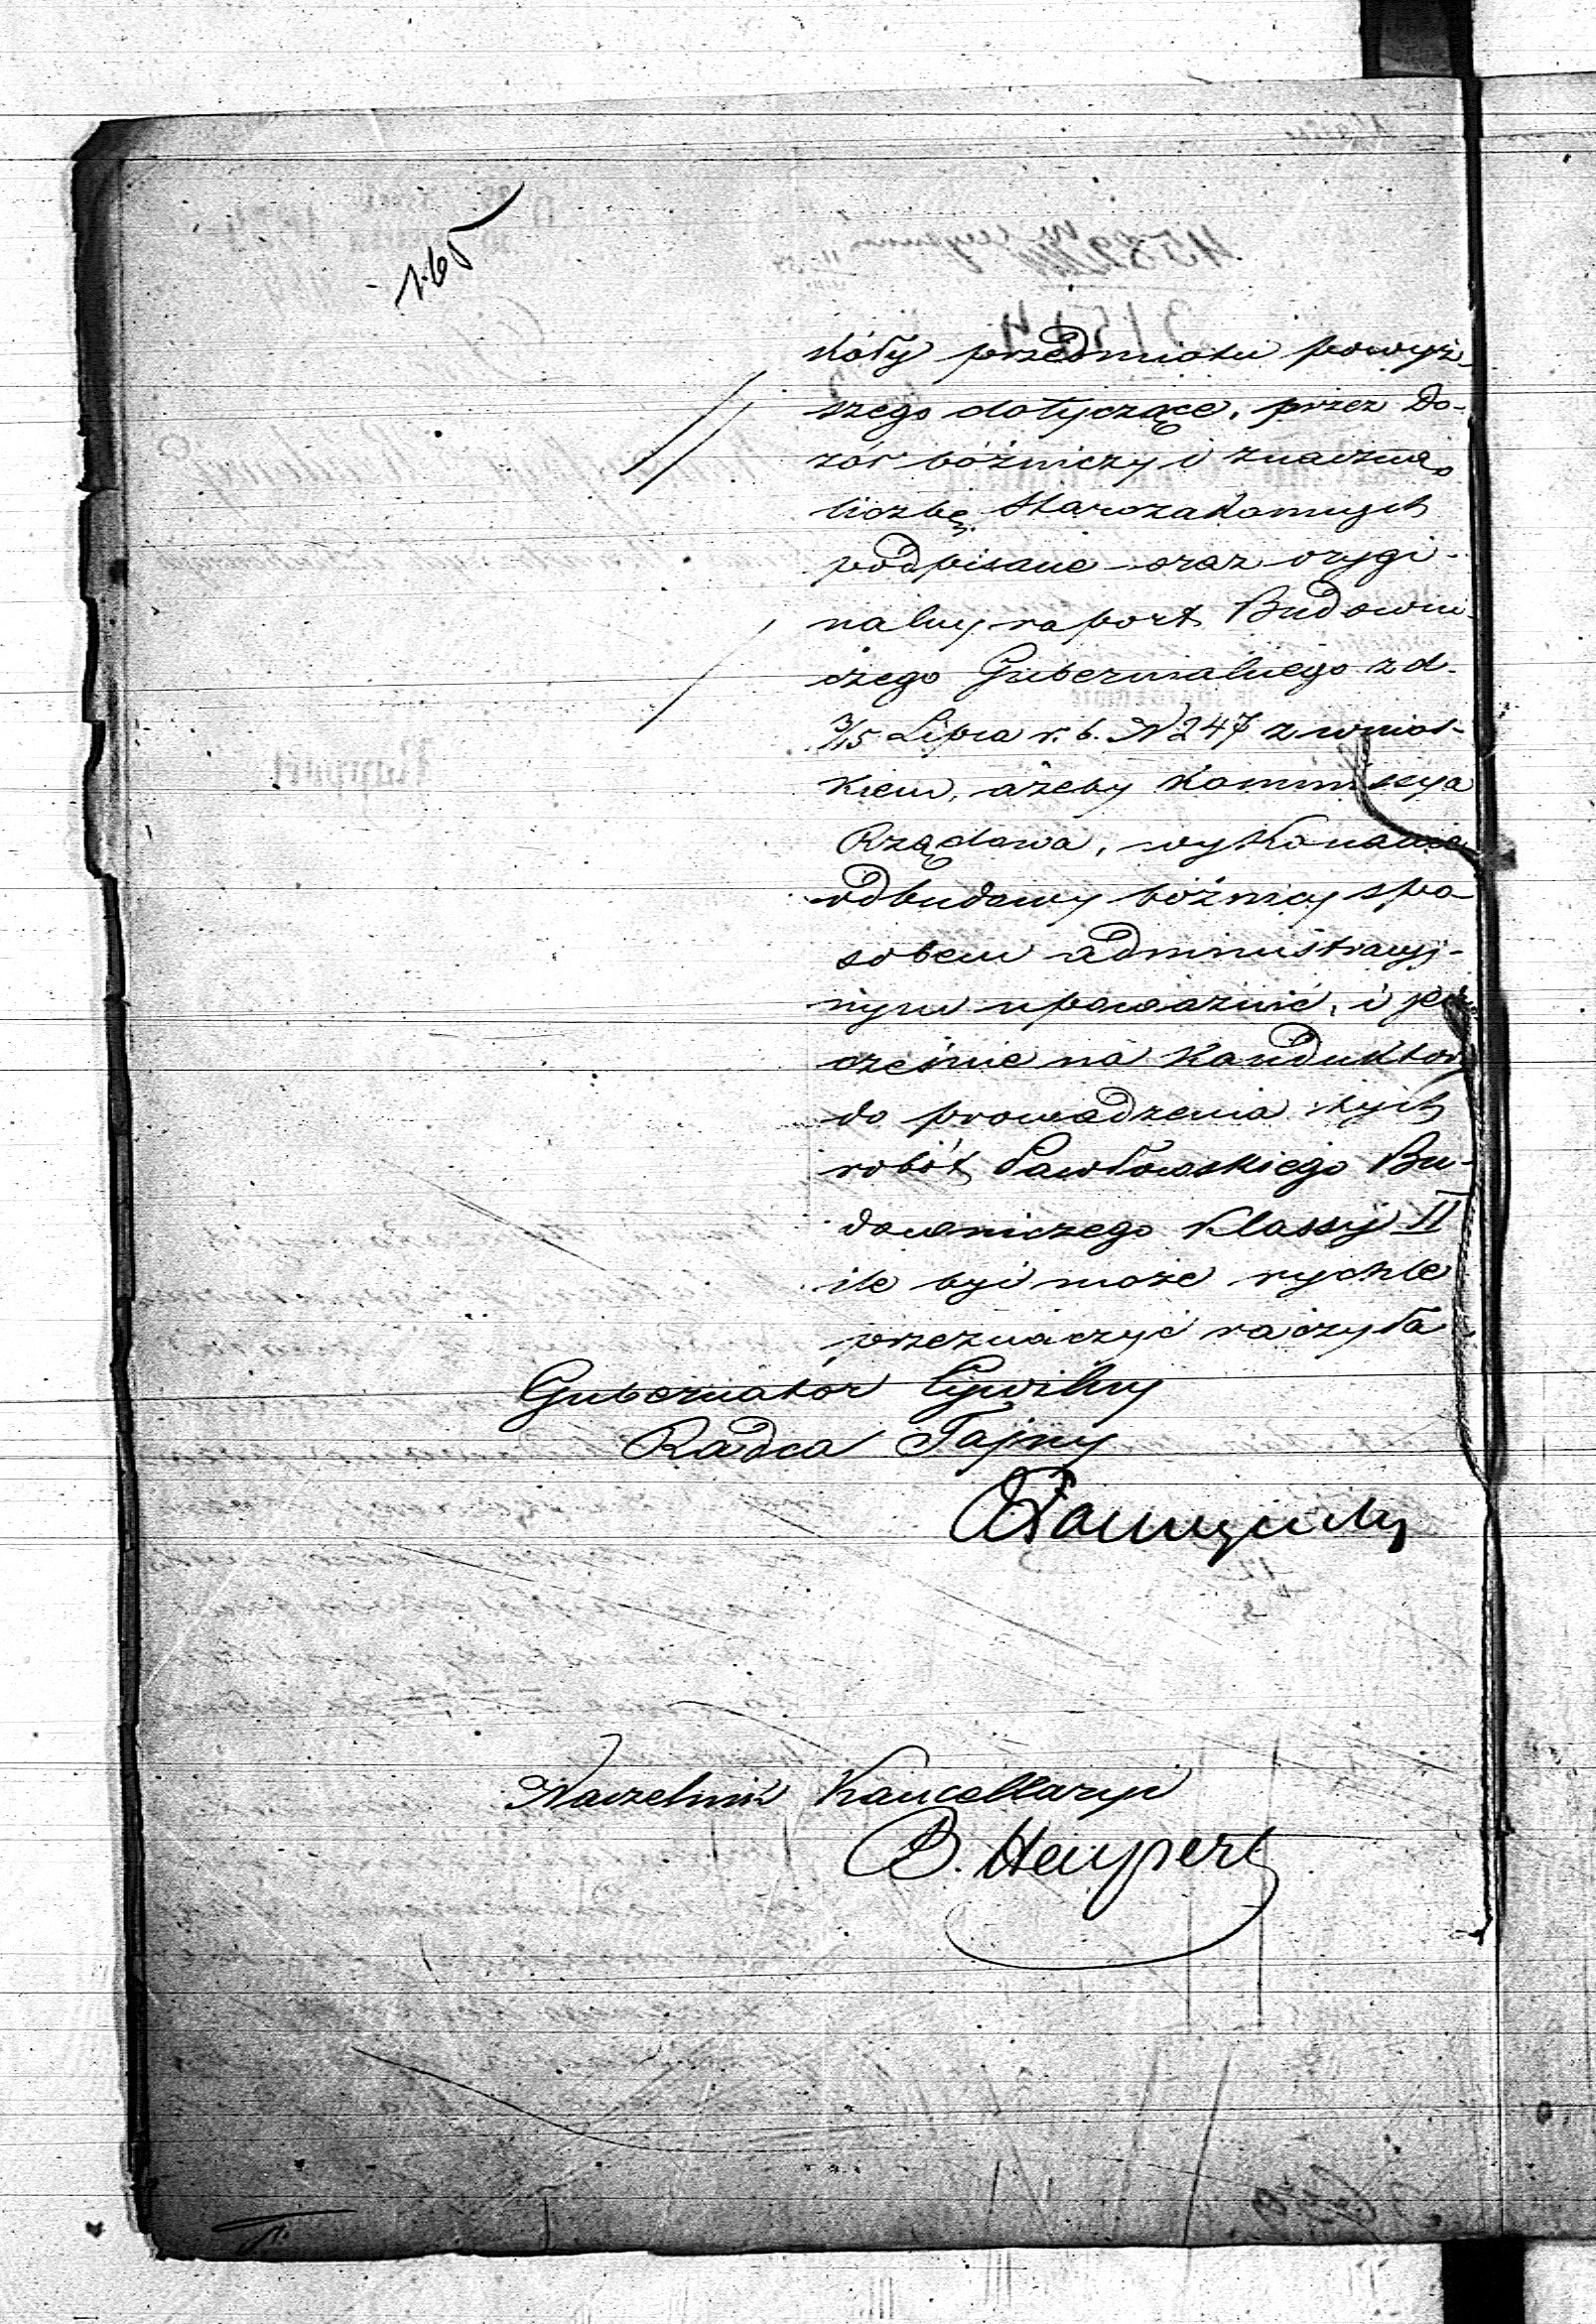 165
kóły przedmiotu powyż-
szego dotyczące, przez Do-
zór bóżniczy i znaczną
liczbę Starozakonnych
podpisane oraz orygi-
nalny raport Budowni-
czego Gubernialnego z d.
3/15 Lipca r. b. N 247 z wnios-
kiem, ażeby Kommissya
Rządowa, wykonanie
odbudowy bóżnicy spo-
sobem administracyj-
nym upoważnić, i
cześnie na Konduktora
do prowadzenia tych
robót Pawłowskiego Bu-
downiczego Klassy II
ile być może rychle
przeznaczyć raczyła
Gubernator Cywilny
Radca Tajny
Naczelnik Kancellaryi
B. Heypert